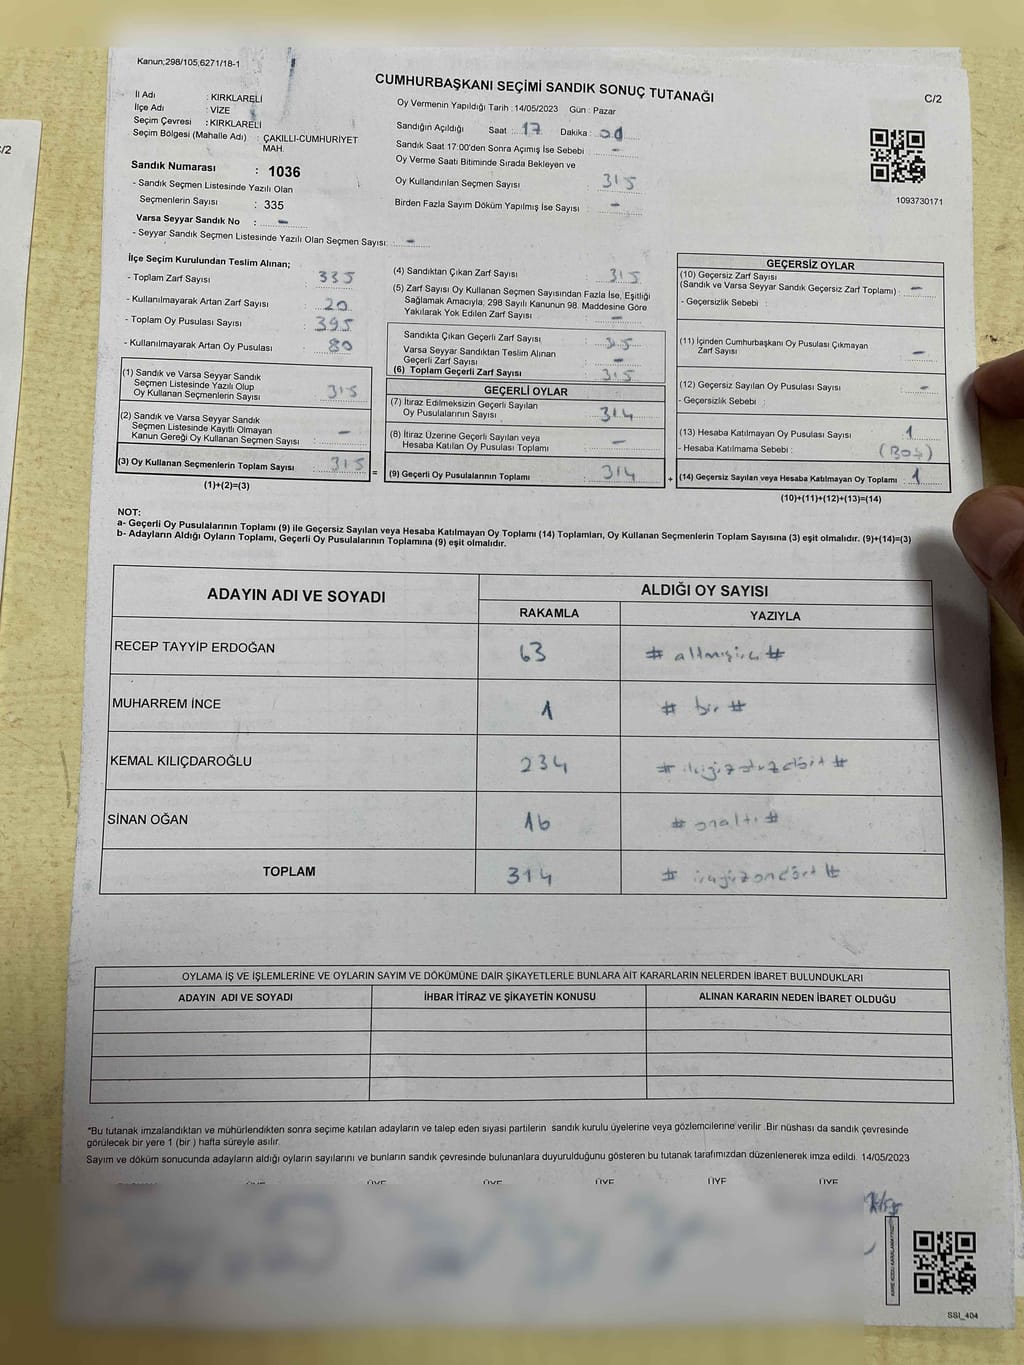 Kanun,298/105,6271/18-1
CUMHURBAŞKANI SEÇİMİ SANDIK SONUÇ TUTANAĞI
C/2
/2
İl Adı : KIRKLARELİ
İlçe Adı : VİZE
Seçim Çevresi : KIRKLARELİ
Seçim Bölgesi (Mahalle Adı) : ÇAKILLI-CUMHURİYET
MAH.
Sandık Numarası : 1036
- Sandık Seçmen Listesinde Yazılı Olan
Seçmenlerin Sayısı : 335
Varsa Seyyar Sandık No : -
- Seyyar Sandık Seçmen Listesinde Yazılı Olan Seçmen Sayısı: -
Oy Vermenin Yapıldığı Tarih : 14/05/2023 Gün : Pazar
Sandığın Açıldığı Saat : 17 Dakika : 00
Sandık Saat 17:00'den Sonra Açımış İse Sebebi : -
Oy Verme Saati Bitiminde Sırada Bekleyen ve
Oy Kullandırılan Seçmen Sayısı : 315
Birden Fazla Sayım Döküm Yapılmış İse Sayısı : -
1093730171
İlçe Seçim Kurulundan Teslim Alınan;
- Toplam Zarf Sayısı : 335
- Kullanılmayarak Artan Zarf Sayısı : 20
- Toplam Oy Pusulası Sayısı : 395
- Kullanılmayarak Artan Oy Pusulası : 80
(1) Sandık ve Varsa Seyyar Sandık
Seçmen Listesinde Yazılı Olup
Oy Kullanan Seçmenlerin Sayısı : 315
(2) Sandık ve Varsa Seyyar Sandık
Seçmen Listesinde Kayıtlı Olmayan
Kanun Gereği Oy Kullanan Seçmen Sayısı : -
(3) Oy Kullanan Seçmenlerin Toplam Sayısı : 315
(1)+(2)=(3)
(4) Sandıktan Çıkan Zarf Sayısı : 315
(5) Zarf Sayısı Oy Kullanan Seçmen Sayısından Fazla İse, Eşitliği
Sağlamak Amacıyla; 298 Sayılı Kanunun 98. Maddesine Göre
Yakılarak Yok Edilen Zarf Sayısı : -
Sandıkta Çıkan Geçerli Zarf Sayısı : 315
Varsa Seyyar Sandıktan Teslim Alınan
Geçerli Zarf Sayısı : -
(6) Toplam Geçerli Zarf Sayısı : 315
GEÇERLİ OYLAR
(7) İtiraz Edilmeksizin Geçerli Sayılan
Oy Pusulalarının Sayısı : 314
(8) İtiraz Üzerine Geçerli Sayılan veya
Hesaba Katılan Oy Pusulası Toplamı : -
= (9) Geçerli Oy Pusulalarının Toplamı : 314
GEÇERSİZ OYLAR
(10) Geçersiz Zarf Sayısı
(Sandık ve Varsa Seyyar Sandık Geçersiz Zarf Toplamı) : -
- Geçersizlik Sebebi :
(11) İçinden Cumhurbaşkanı Oy Pusulası Çıkmayan
Zarf Sayısı : -
(12) Geçersiz Sayılan Oy Pusulası Sayısı : -
- Geçersizlik Sebebi :
(13) Hesaba Katılmayan Oy Pusulası Sayısı : 1
- Hesaba Katılmama Sebebi : (BOŞ)
+ (14) Geçersiz Sayılan veya Hesaba Katılmayan Oy Toplamı : 1
(10)+(11)+(12)+(13)=(14)
NOT:
a- Geçerli Oy Pusulalarının Toplamı (9) ile Geçersiz Sayılan veya Hesaba Katılmayan Oy Toplamı (14) Toplamları, Oy Kullanan Seçmenlerin Toplam Sayısına (3) eşit olmalıdır. (9)+(14)=(3)
b- Adayların Aldığı Oyların Toplamı, Geçerli Oy Pusulalarının Toplamına (9) eşit olmalıdır.
ADAYIN ADI VE SOYADI
ALDIĞI OY SAYISI
RAKAMLA YAZIYLA
RECEP TAYYİP ERDOĞAN 63 # altmışüç #
MUHARREM İNCE 1 # bir #
KEMAL KILIÇDAROĞLU 234 # ikiyüzotuzdört #
SİNAN OĞAN 16 # onaltı #
TOPLAM 314 # üçyüzondört #
OYLAMA İŞ VE İŞLEMLERİNE VE OYLARIN SAYIM VE DÖKÜMÜNE DAİR ŞİKAYETLERLE BUNLARA AİT KARARLARIN NELERDEN İBARET BULUNDUKLARI
ADAYIN ADI VE SOYADI İHBAR İTİRAZ VE ŞİKAYETİN KONUSU ALINAN KARARIN NEDEN İBARET OLDUĞU
*Bu tutanak imzalandıktan ve mühürlendikten sonra seçime katılan adayların ve talep eden siyasi partilerin sandık kurulu üyelerine veya gözlemcilerine verilir .Bir nüshası da sandık çevresinde
görülecek bir yere 1 (bir ) hafta süreyle asılır.
Sayım ve döküm sonucunda adayların aldığı oyların sayılarını ve bunların sandık çevresinde bulunanlara duyurulduğunu gösteren bu tutanak tarafımızdan düzenlenerek imza edildi. 14/05/2023
ÜYE ÜYE ÜYE ÜYE ÜYE ÜYE
SSİ_404